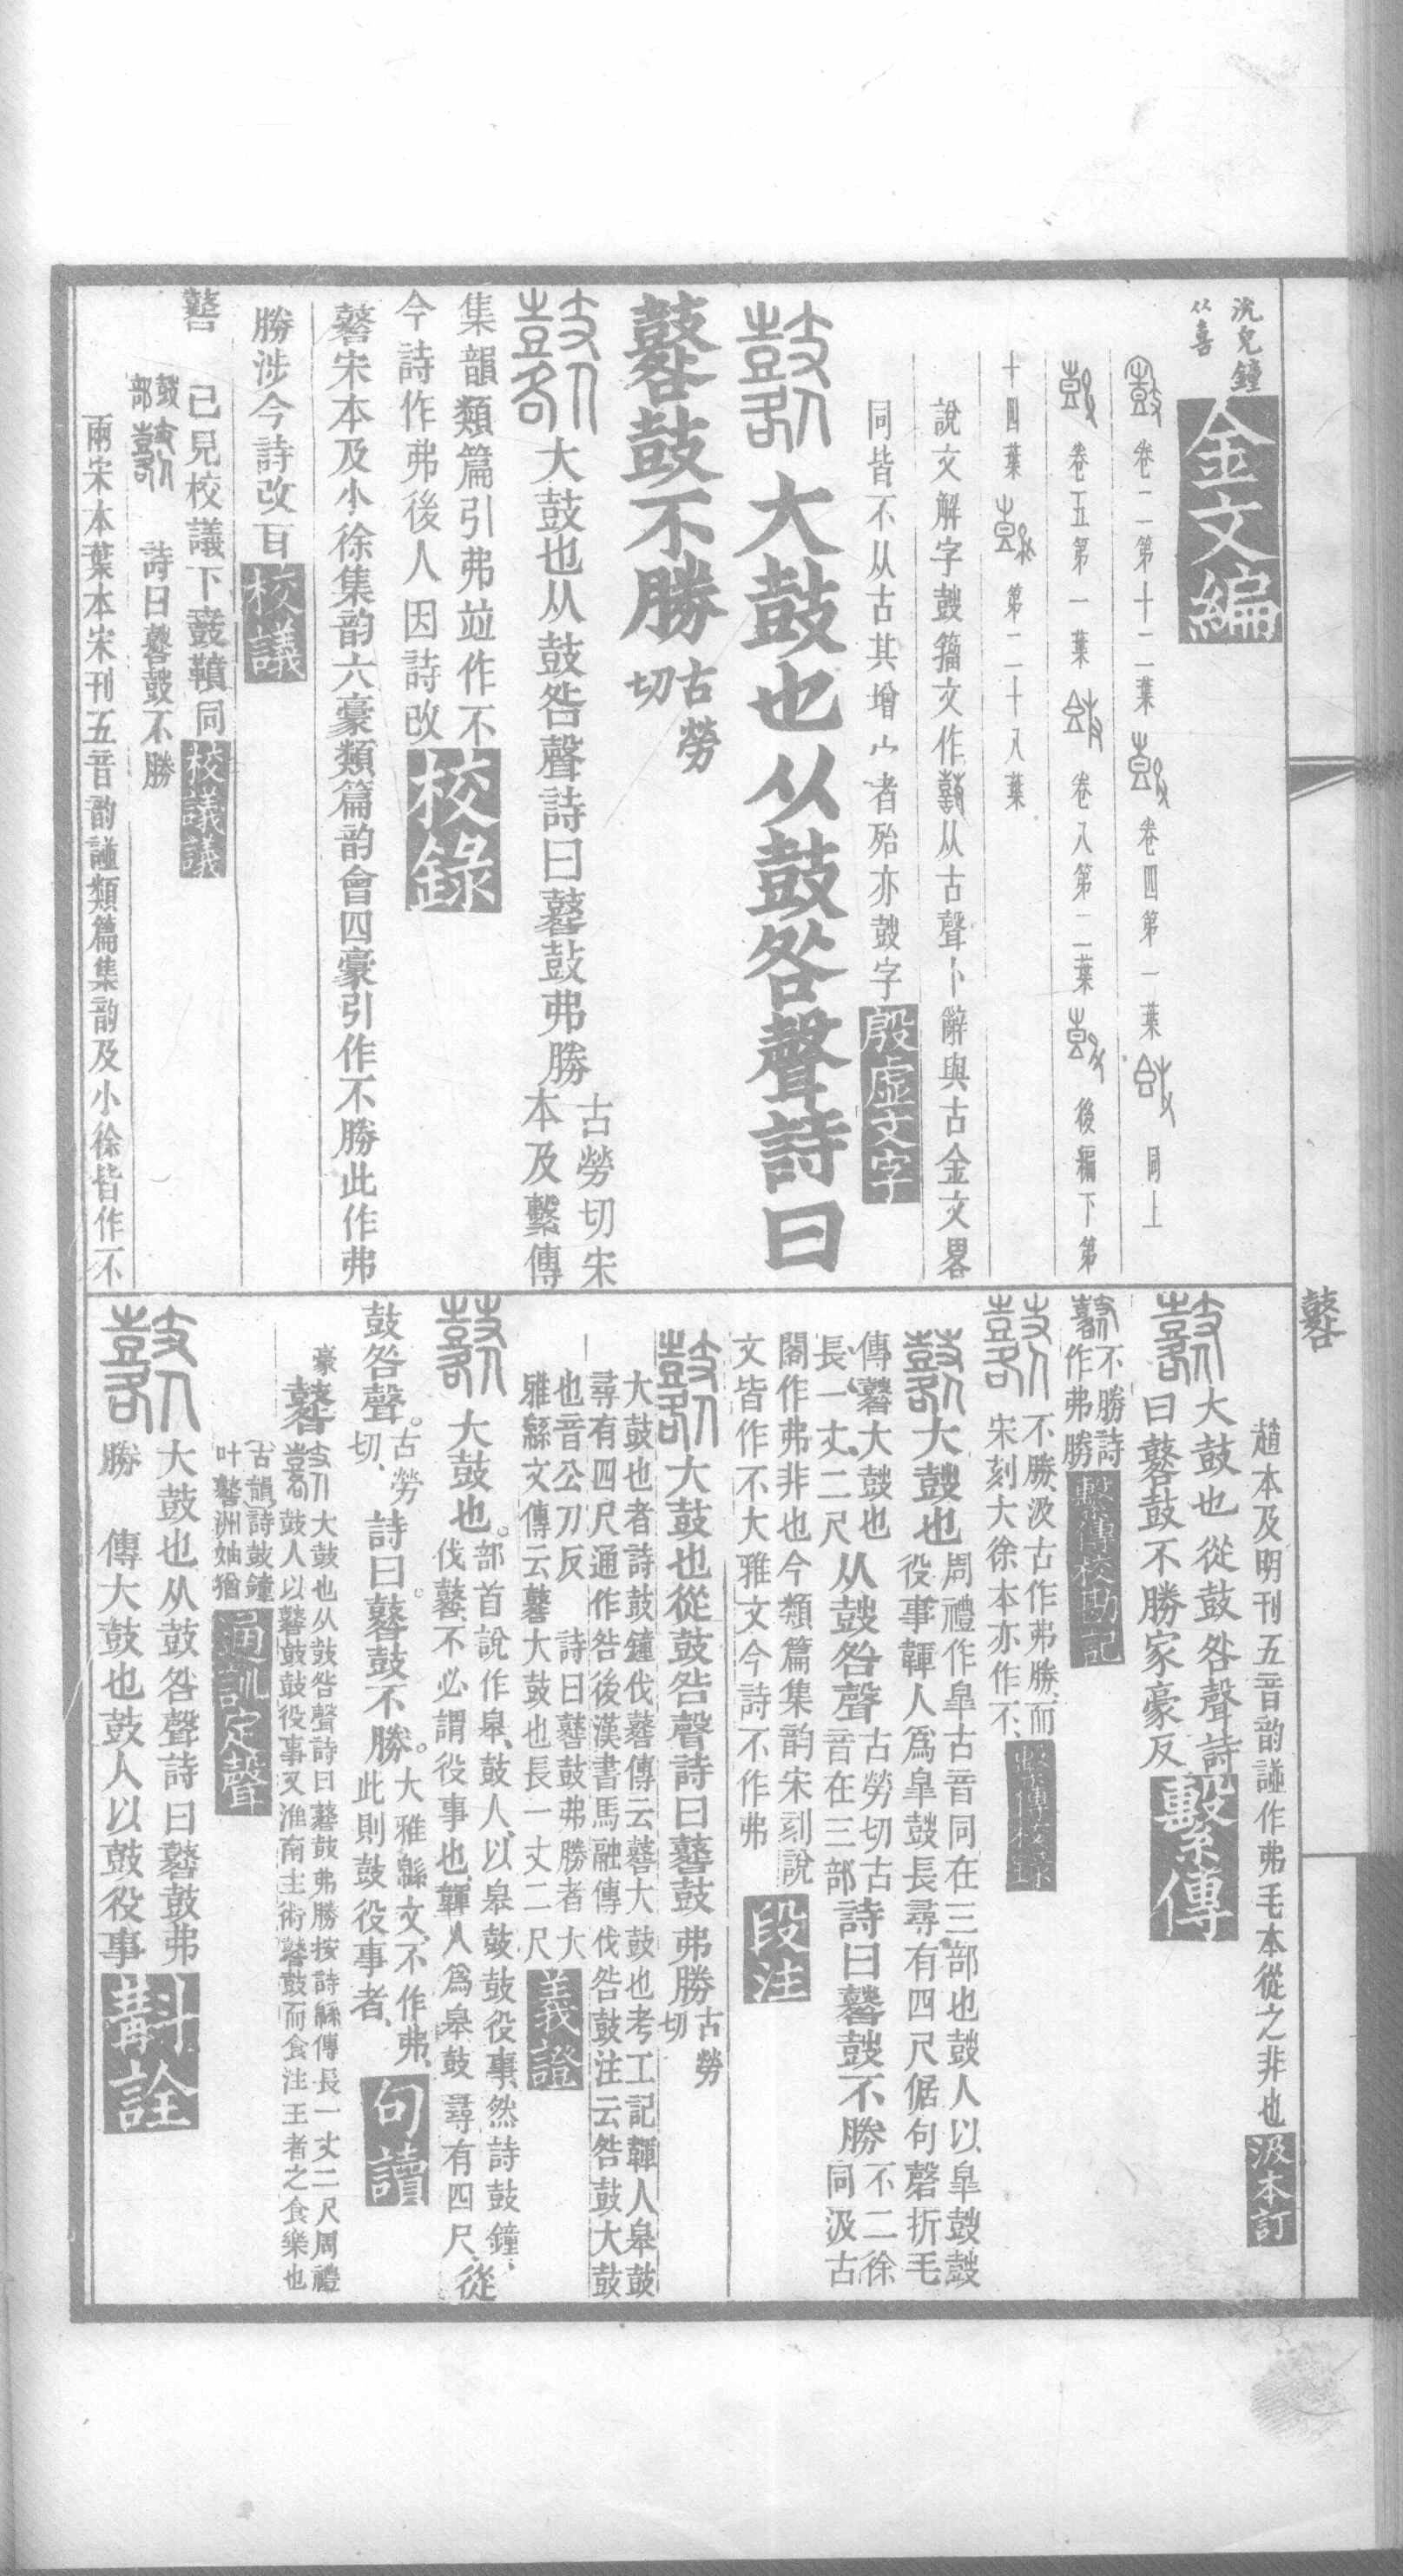 沇兒鐘
从喜
金文編
卷二第十二葉 卷四第一葉 同上
卷五第一葉 卷八第二葉 後編下第
十四葉 第二十八葉
說文解字鼓籀文作 从古聲卜辭與古金文畧
同皆不从古其增宀者殆亦鼓字殷虛文字
大鼓也从鼓咎聲詩曰
鼛鼓不勝古勞切
大鼓也从鼓咎聲詩曰鼛鼓弗勝古勞切宋
本及繫傳
集韻類篇引弗竝作不
今詩作弗後人因詩改校錄
鼛宋本及小徐集韵六豪類篇韵會四豪引作不勝此作弗
勝涉今詩改百校議
鼛 已見校議下鼖鞼同校議議
鼓部 詩曰鼛鼓不勝
兩宋本葉本宋刊五音韵譜類篇集韵及小徐皆作不
趙本及明刊五音韵譜作弗毛本從之非也汲本訂
大鼓也從鼓咎聲詩
曰鼛鼓不勝家豪反繫傳
不勝詩
作弗勝繫傳校勘記
不勝汲古作弗勝而
宋刻大徐本亦作不繫傳校錄
大鼓也周禮作皐古音同在三部也鼓人以皐鼓鼓
役事韗人爲皐鼓長尋有四尺倨句磬折毛
傳鼛大鼓也
長一丈二尺从鼓咎聲古勞切古
音在三部詩曰鼛鼓不勝不二徐
同汲古
閣作弗非也今類篇集韵宋刻說
文皆作不大雅文今詩不作弗段注
大鼓也從鼓咎聲詩曰鼛鼓弗勝古勞切
大鼓也者詩鼓鐘伐鼛傳云鼛大鼓也考工記韗人皋鼓
尋有四尺通作咎後漢書馬融傳伐咎鼓注云咎鼓大鼓
也音公刀反 詩曰鼛鼓弗勝者大
雅緜文傳云鼛大鼓也長一丈二尺義證
大鼓也。部首說作皋、鼓人、以皋鼓鼓役事、然詩鼓鐘、
伐鼛、不必謂役事也、韗人爲皋鼓尋有四尺、從
鼓咎聲。古勞切、詩曰。鼛鼓不勝。大雅緜文、不作弗、
此則鼓役事者、句讀
豪
鼛 大鼓也从鼓咎聲詩曰鼛鼓弗勝按詩緜傳長一丈二尺周禮
鼓人以鼛鼓鼓役事又淮南主術鼛鼓而食注王者之食樂也
古韻詩鼓鐘
叶鼛洲妯猶通訓定聲
大鼓也从鼓咎聲詩曰鼛鼓弗
勝 傳大鼓也鼓人以鼓役事斠詮
鼛